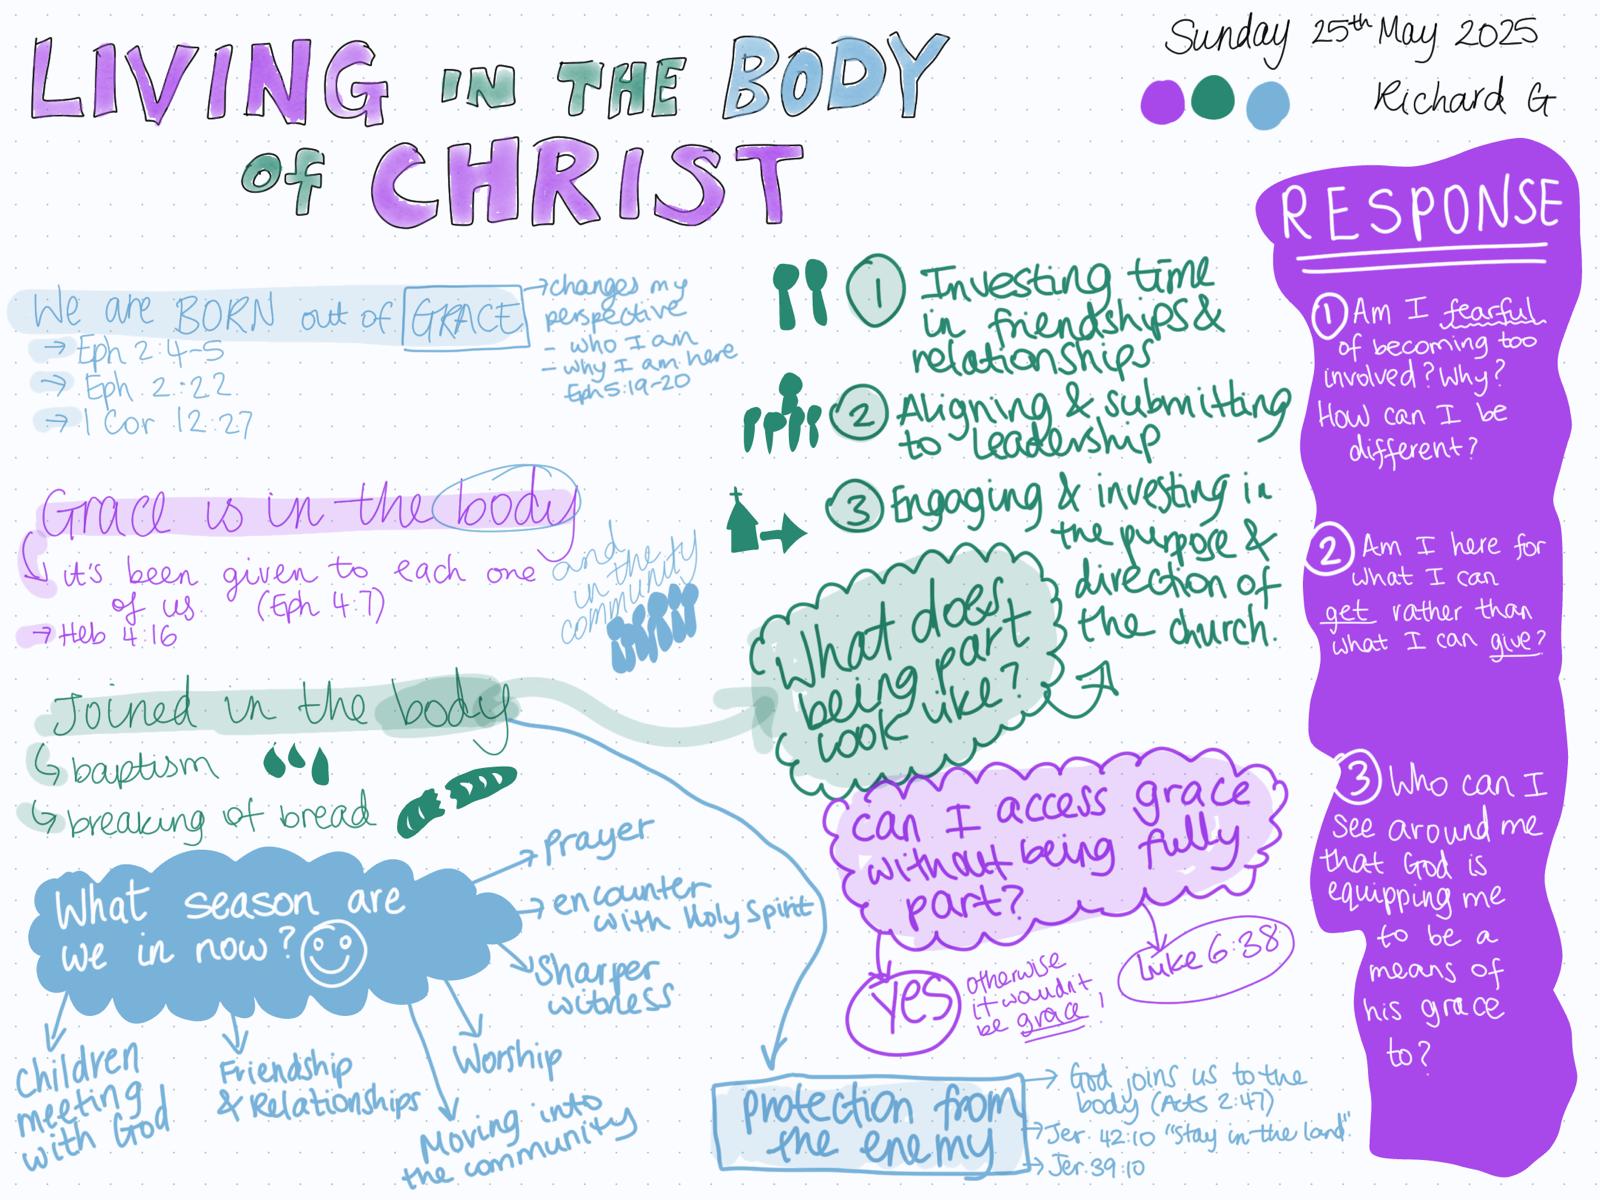 LIVING IN THE BODY
of CHRIST
Sunday 25th May 2025
Richard G
We are BORN out of GRACE
→ Eph 2:4-5
→ Eph 2:22
→ 1 Cor 12:27
→ changes my
perspective
- who I am
- why I am here
Eph 5:19-20
Grace is in the body
it's been given to each one
of us. (Eph 4:7)
→ Heb 4:16
and
in the
community
Joined in the body
baptism
breaking of bread
What season are
we in now?
Prayer
encounter
with Holy Spirit
Sharper
witness
Worship
Moving into
the community
Friendship
& Relationships
Children
meeting
with God
1 Investing time
in friendships &
relationships
2 Aligning & submitting
to leadership
3 Engaging & investing in
the purpose &
direction of
the church.
What does
being part
look like?
can I access grace
without being fully
part?
Yes
otherwise
it wouldn't
be grace!
Luke 6:38
protection from
the enemy
→ God joins us to the
body (Acts 2:47)
→ Jer. 42:10 "Stay in the land"
→ Jer. 39:10
RESPONSE
1 Am I fearful
of becoming too
involved? Why?
How can I be
different?
2 Am I here for
what I can
get rather than
what I can give?
3 Who can I
see around me
that God is
equipping me
to be a
means of
his grace
to?